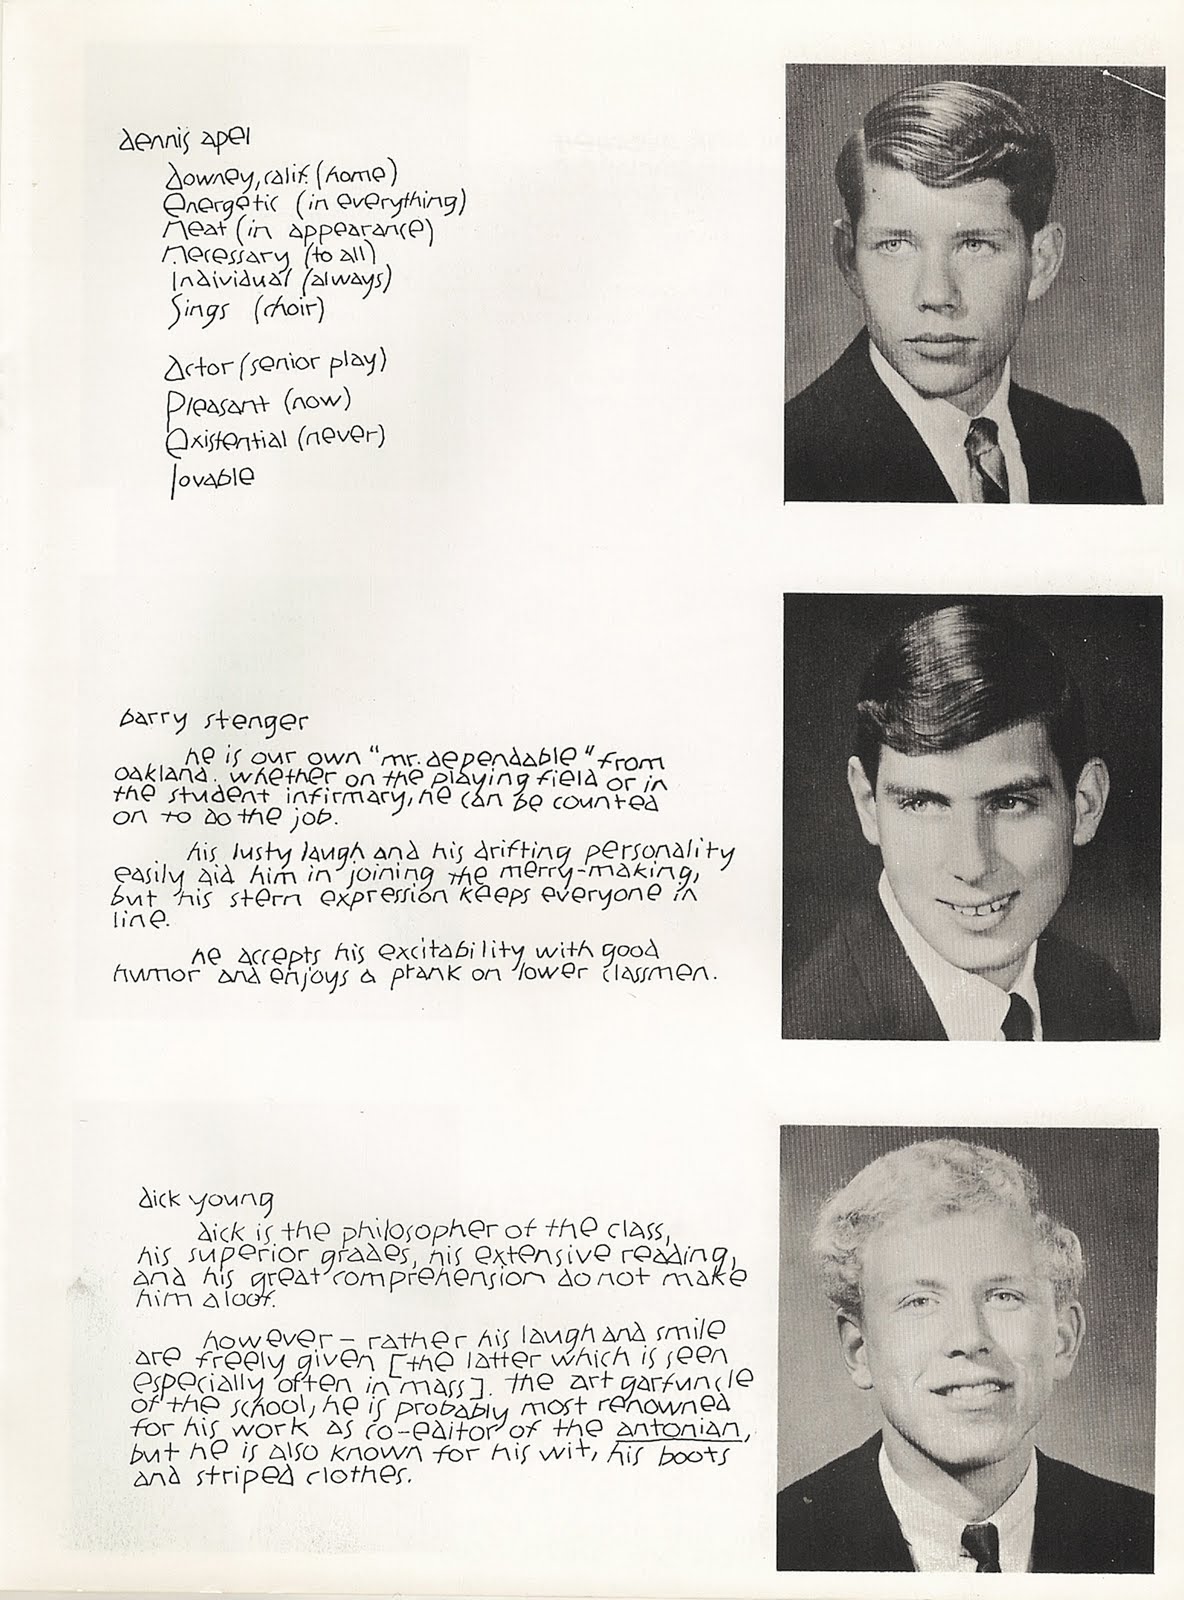 dennis apel
Downey, calif. (home)
Energetic (in everything)
Neat (in appearance)
Necessary (to all)
Individual (always)
Sings (choir)
Actor (senior play)
Pleasant (now)
Existential (never)
lovable
barry stenger
he is our own "mr. dependable" from
oakland. whether on the playing field or in
the student infirmary, he can be counted
on to do the job.
his lusty laugh and his drifting personality
easily aid him in joining the merry-making,
but his stern expression keeps everyone in
line.
he accepts his excitability with good
humor and enjoys a prank on lower classmen.
dick young
dick is the philosopher of the class,
his superior grades, his extensive reading,
and his great comprehension do not make
him aloof.
however - rather his laugh and smile
are freely given [the latter which is seen
especially often in mass]. the art garfuncle
of the school, he is probably most renowned
for his work as co-editor of the antonian,
but he is also known for his wit, his boots
and striped clothes.